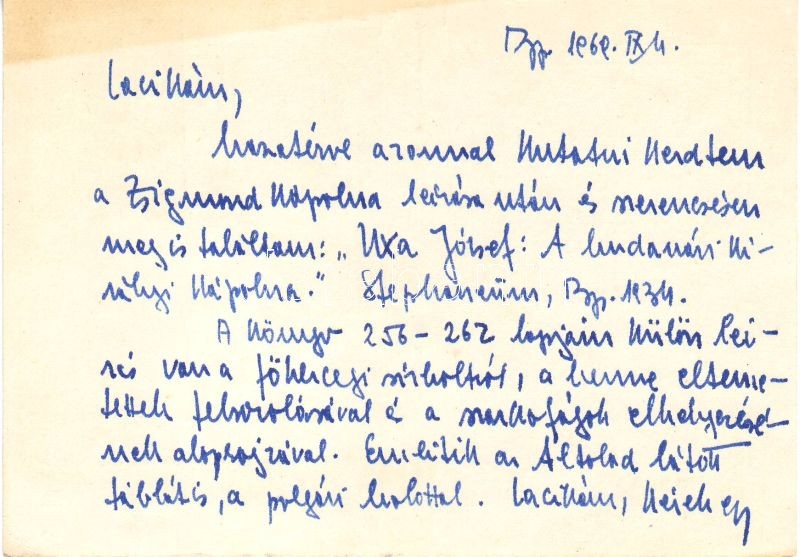 Bp. 1969. IX 4.
Lacikám,
hazatérve azonnal kutatni kezdtem
a Zsigmond kápolna leirása után és szerencsésen
meg is találtam: „Uxa József: A budavári ki-
rályi kápolna." Stephaneum, Bp. 1934.
A könyv 256-262 lapjain külön leí-
rás van a főhercegi sírboltról, a benne elteme-
tettek felsorolásával és a szarkofágok elhelyezésé-
nek alaprajzával. Emlitik az Általad látott
táblát is, a polgári halottal. Lacikám, kérek egy